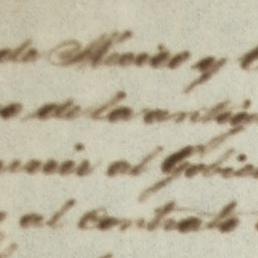 de Mexico y
de la antig
al Gobie
al contrato